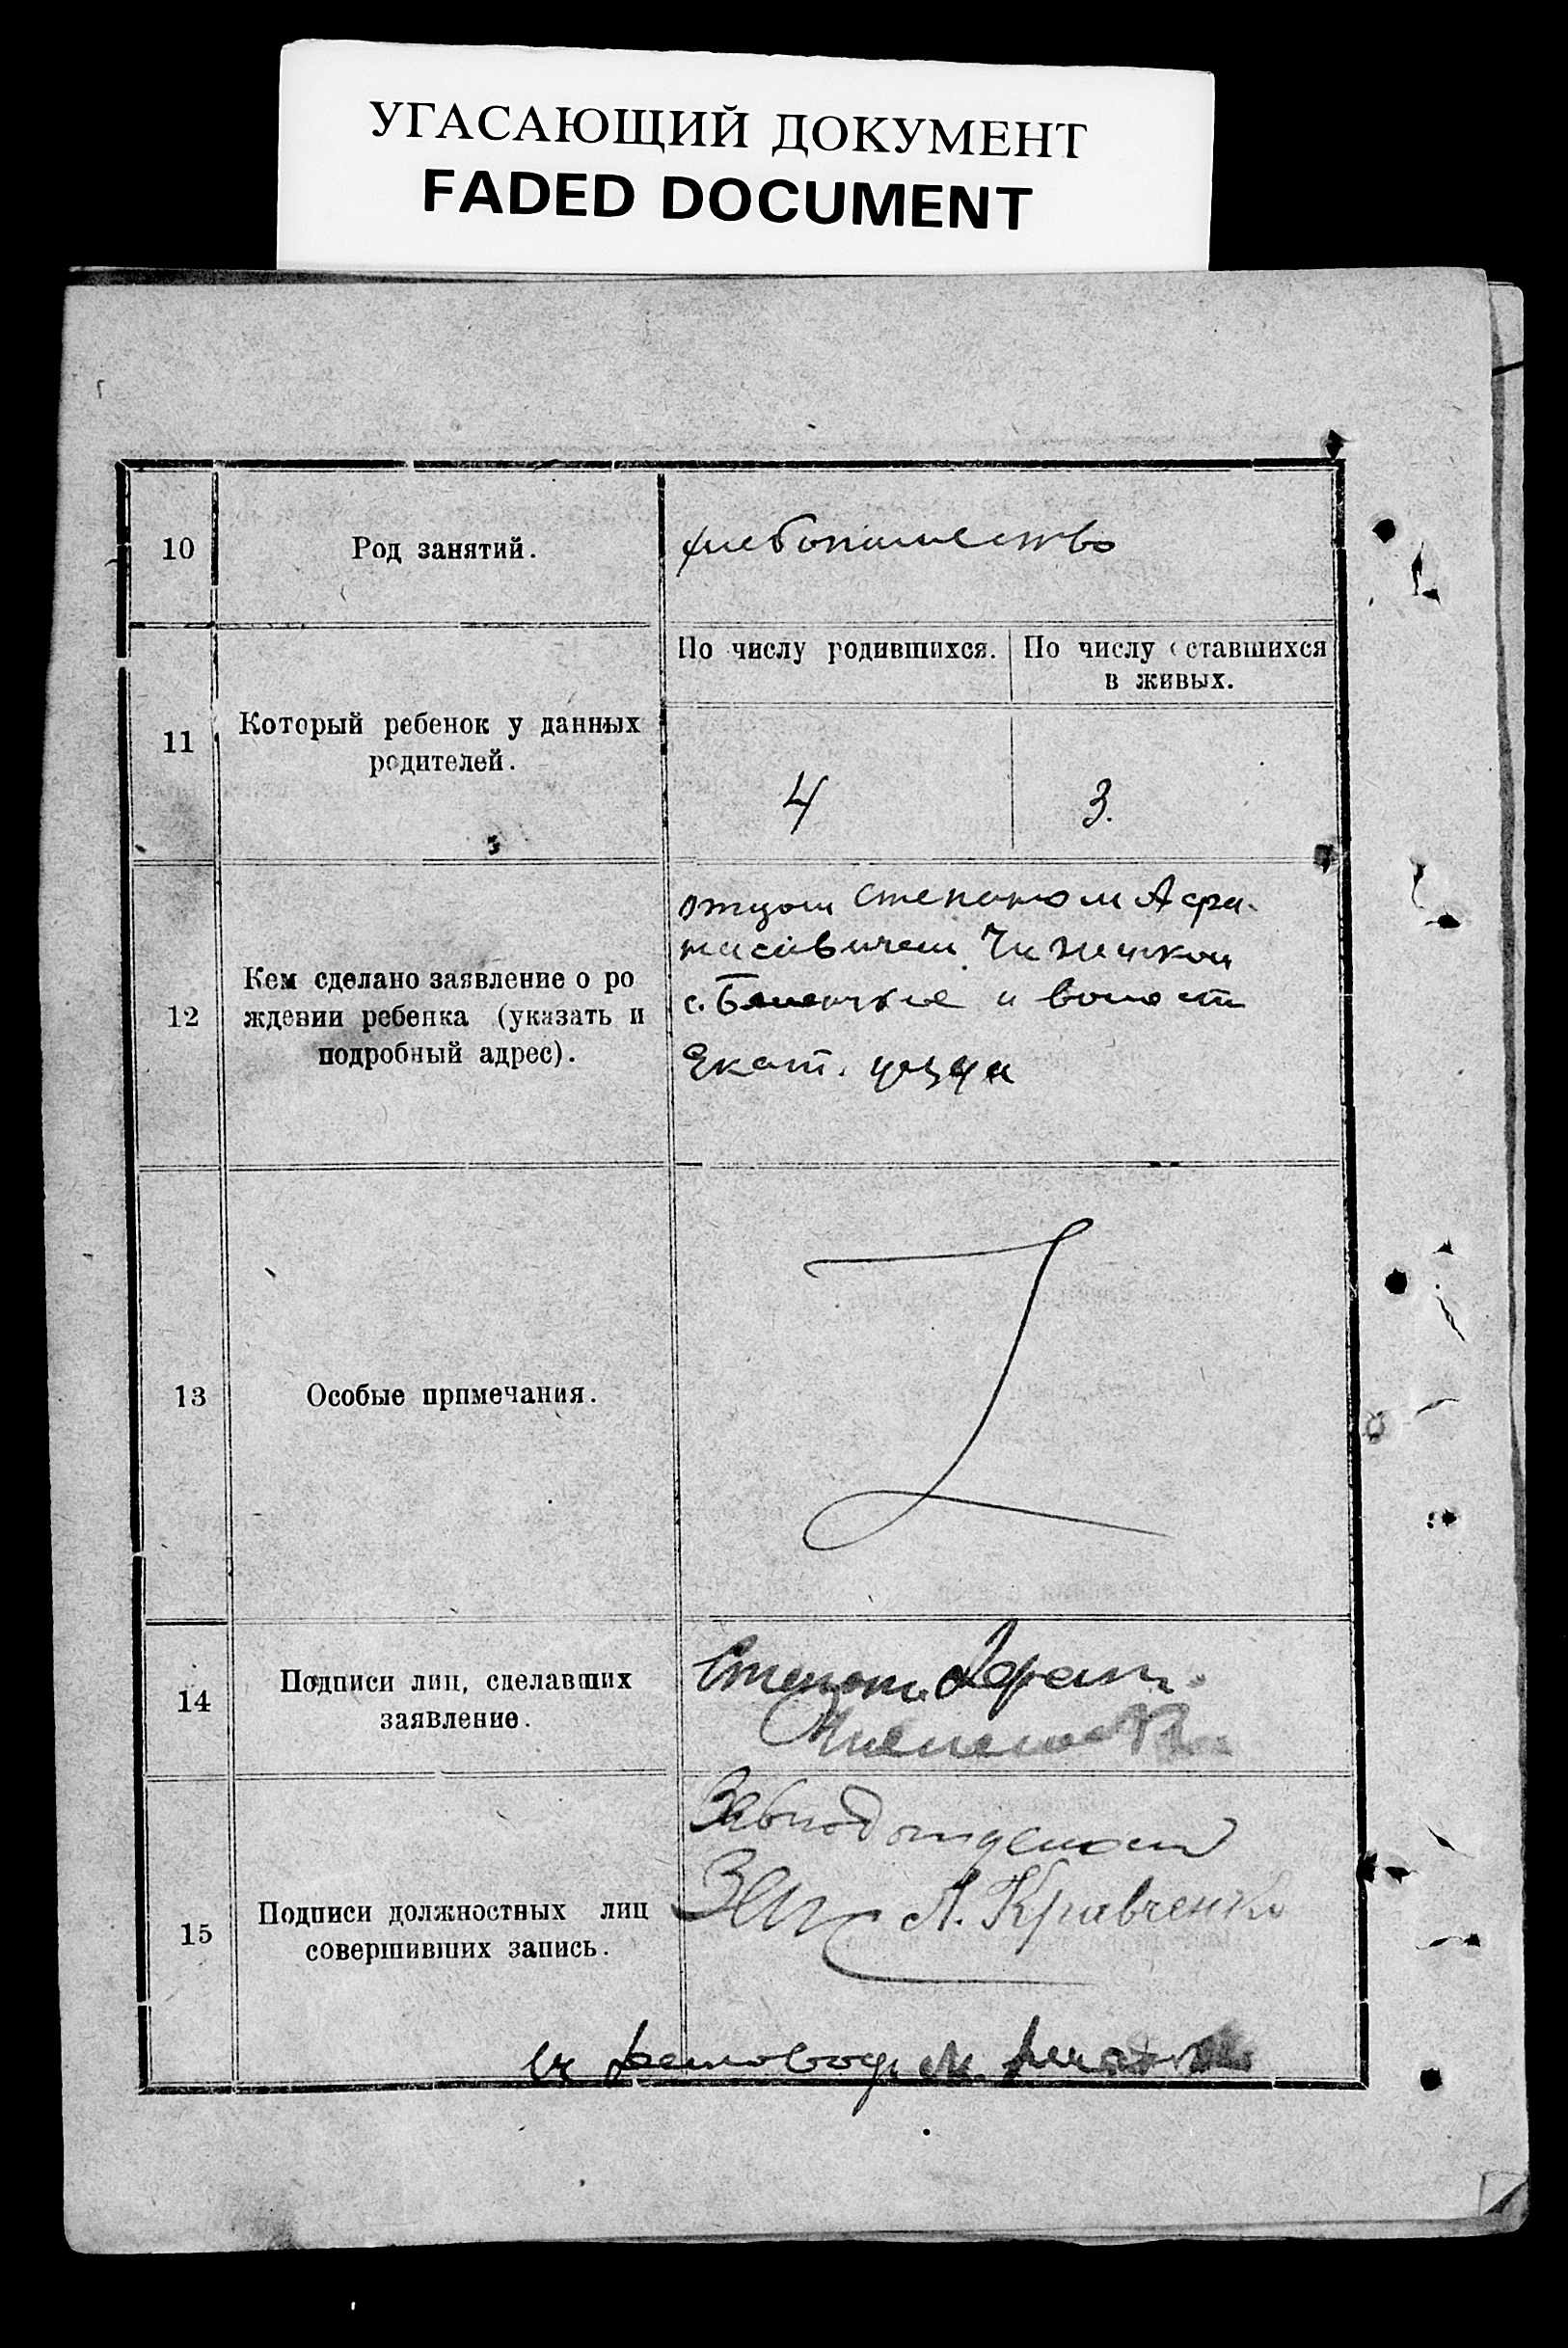 УГАСАЮЩИЙ ДОКУМЕНТ
FADED DOCUMENT
10
Род занятий.
хлебопашество
11
Который ребенок у данных
родителей.
По числу родившихся.
По числу оставшихся
в живых.
4
3.
12
Кем сделано заявление о ро
ждении ребенка (указать и
подробный адрес).
отцом Степаном Афа-
насовичем
с. и волости
Екат. уезда
13
Особые примечания.
14
Подписи лиц, сделавших
заявление.
Степан Афан.
15
Подписи должностных лиц
совершивших запись.
Завподотделом
Зап А. Кравченко